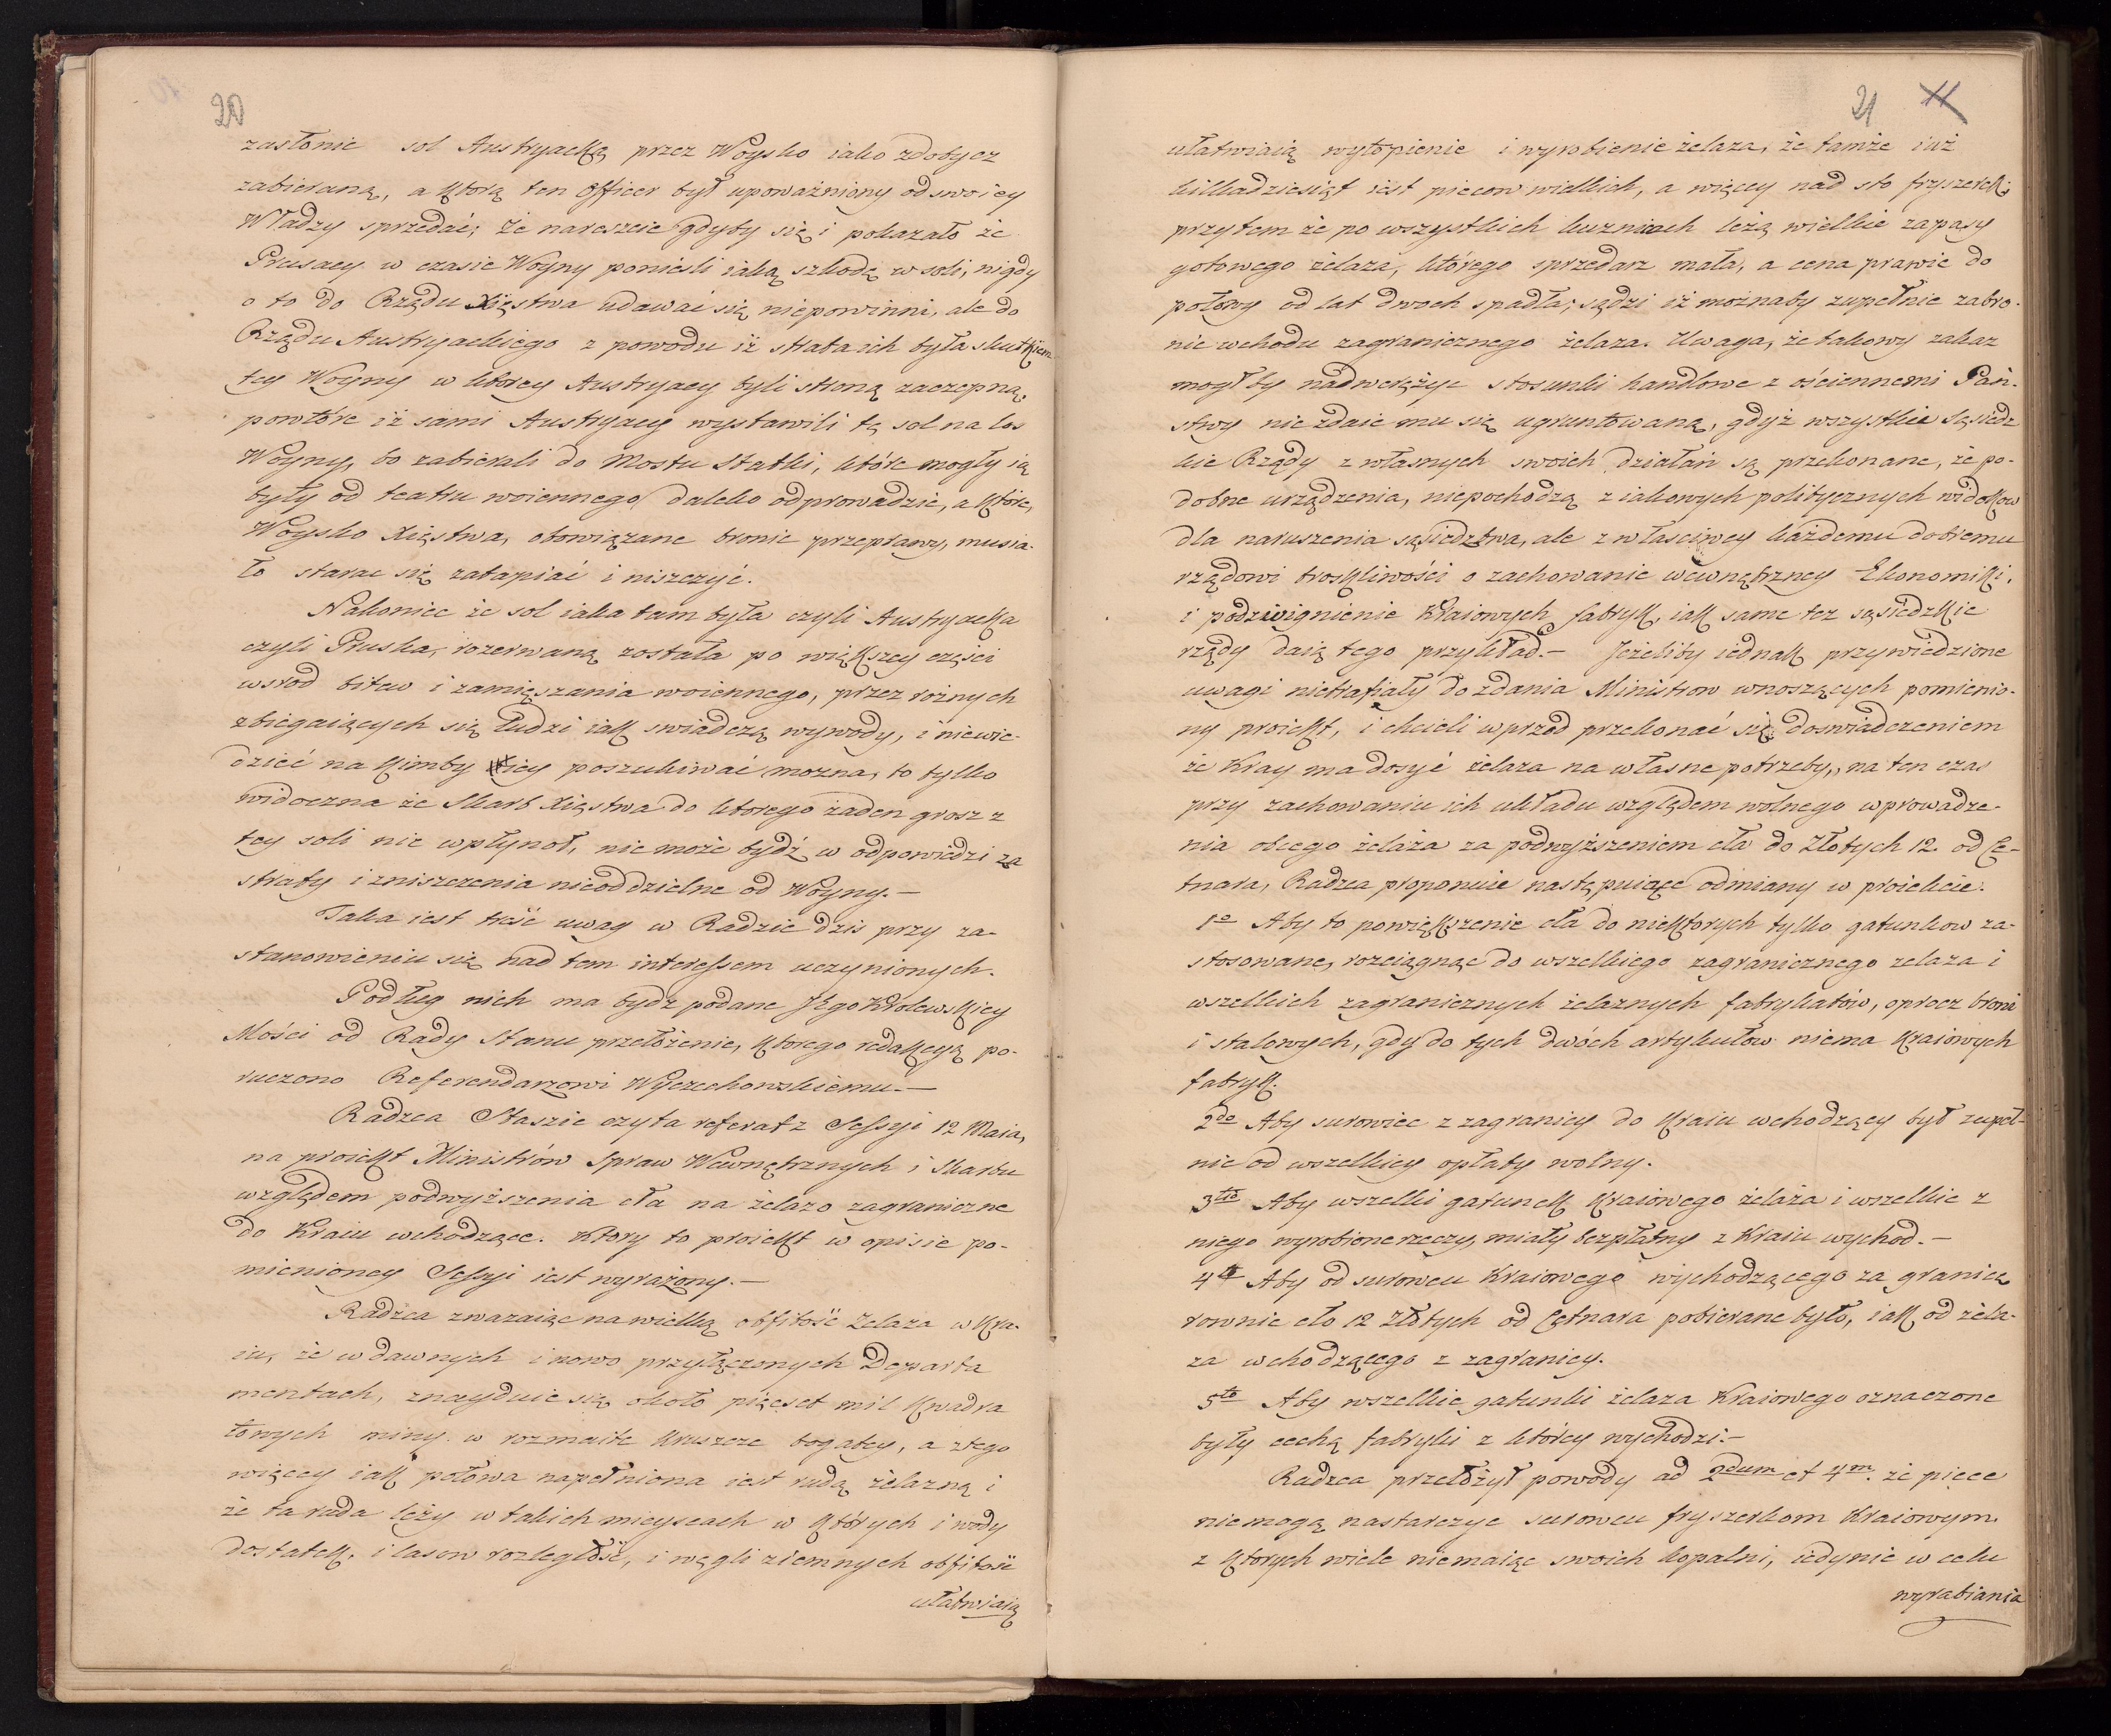 20
zasłonic sol Austryacką przez Woysko iako zdobycz
zabieraną, a którą ten Officer był upoważniony od swoiey
Władzy sprzedać; że nareszcie gdyby się i pokazało że
Prusacy w czasie Woyny ponieśli iaką szkodę w soli, nigdy
o to do Rządu Xięstwa udawać się niepowinni, ale do
Rządu Austryackiego z powodu iż strata ich była skutkiem
tey Woyny w ktorey Austryacy byli stroną zaczepną,
powtóre iż sami Austryacy wystawili tę sol na los
Woyny, bo zabierali do Mostu Statki, które mogły ią
były od teatru woiennego daleko odprowadzić, a które,
Woysko Xięstwa, obowiązane bronic przeprawy, musia-
ło starac się zatapiać i niszczyć.
Nakoniec że sol iaka tam była czyli Austryacka
czyli Pruska, rozerwaną została po większey części
wsrod bitew i zamięszania woiennego, przez rożnych
zbiegaiących się Ludzi iak swiadczą wywody, i niewie-
dzieć na kimby iey poszukiwać mozna, to tylko
widoczna że Skarb Xięstwa do ktorego żaden grosz z
tey soli nie wpłynoł, nie może bydź w odpowiedzi za
straty i zniszczenia nieoddzielne od Woyny.—
Taka iest treść uwag w Radzie dzis przy za-
stanowieniu się nad tem interessem uczynionych.
Podług nich ma bydz podane JEgo Krolewskiey
Mości od Rady Stanu przełożenie, ktorego redakcyą po-
ruczono Referendarzowi Wyczechowskiemu.—
Radzca Staszic czyta referat z Sessyi 12 Maia,
na proiekt Ministrów Spraw Wewnętrznych i Skarbu
względem podwyższenia cła na żelazo zagraniczne
do Kraiu wchodzące. Ktory to proiekt w opisie po-
mienioney Sessyi iest wyrażony.—
Radzca zwazaiąc na wielką obfitość Żelaza w Kra-
iu, że w dawnych i nowo przyłączonych Departa
mentach, znayduie się około pięćset mil kwadra
towych miny w rozmaite kruszcze bogatey, a z tego
więcey iak połowa napełniona iest rudą żelazną i
że ta ruda leży w takich mieyscach w których i wody
dostatek, i lasow rozległość, i węgli ziemnych obfitość
ułatwiaią
21 11
ułatwiaią wytopienie i wyrobienie żelaza, że tamże iuż
kilkadziesiąt iest piecow wielkich, a więcey nad sto fryszerek;
przytem że po wszystkich kuzniach leżą wielkie zapasy
gotowego żelaza, którego sprzedarz mała, a cena prawie do
połowy od lat dwoch spadła; sądzi iż możnaby zupełnie zabro-
nic wchodu zagranicznego żelaza. Uwaga, że takowy zakaz
mogłby nadwerężyc stosunki handlowe z ościennemi Pań-
stwy nie zdaie mu się ugruntowaną, gdyż wszystkie Sąsiedz
kie Rządy z własnych swoich działań są przekonane, że po-
dobne urządzenia, niepochodzą z iakowych politycznych widokow
dla naruszenia sąsiedztwa, ale z własciwey każdemu dobremu
rządowi troskliwości o zachowanie wewnętrzney Ekonomiki,
i podzwignienie Kraiowych fabryk, iak same tez sąsiedzkie
rządy daią tego przykład.— Jeżeliby iednak przywiedzione
uwagi nietrafiały do zdania Ministrow wnoszących pomienio-
ny proiekt, i chcieli wprzod przekonać się doswiadczeniem
że Kray ma dosyć żelaza na własne potrzeby, na ten czas
przy zachowaniu ich układu względem wolnego wprowadze-
nia obcego żelaza za podwyższeniem cła do Złotych 12. od Ce-
tnara, Radzca proponuie następuiące odmiany w proiekcie.
1o Aby to powiększenie cła do niektorych tylko gatunkow za-
stosowane, rozciągnąc do wszelkiego zagranicznego zelaza i
wszelkich zagranicznych żelaznych fabrykatów, oprocz broni
i stalowych, gdy do tych dwóch artykułow niema Kraiowych
fabryk.
2do Aby surowiec z zagranicy do Kraiu wchodzący był zupeł-
nie od wszelkiey opłaty wolny.
3tio Aby wszelki gatunek Kraiowego żelaza i wszelkie z
niego wyrobione rzeczy, miały bezpłatny z Kraiu wychod.—
4to Aby od surowcu Kraiowego wychodzącego za granicę
rownie cło 12 Złotych od Cętnara pobierane było, iak od żela-
za wchodzącego z zagranicy.
5to Aby wszelkie gatunki żelaza Kraiowego oznaczone
były cechą fabryki z którey wychodzi.—
Radzca przełożył powody ad 2dum et 4m. że piece
niemogą nastarczyc surowcu fryszerkom Kraiowym.
z ktorych wiele niemaiąc swoich kopalni, iedynie w celu
wyrabiania